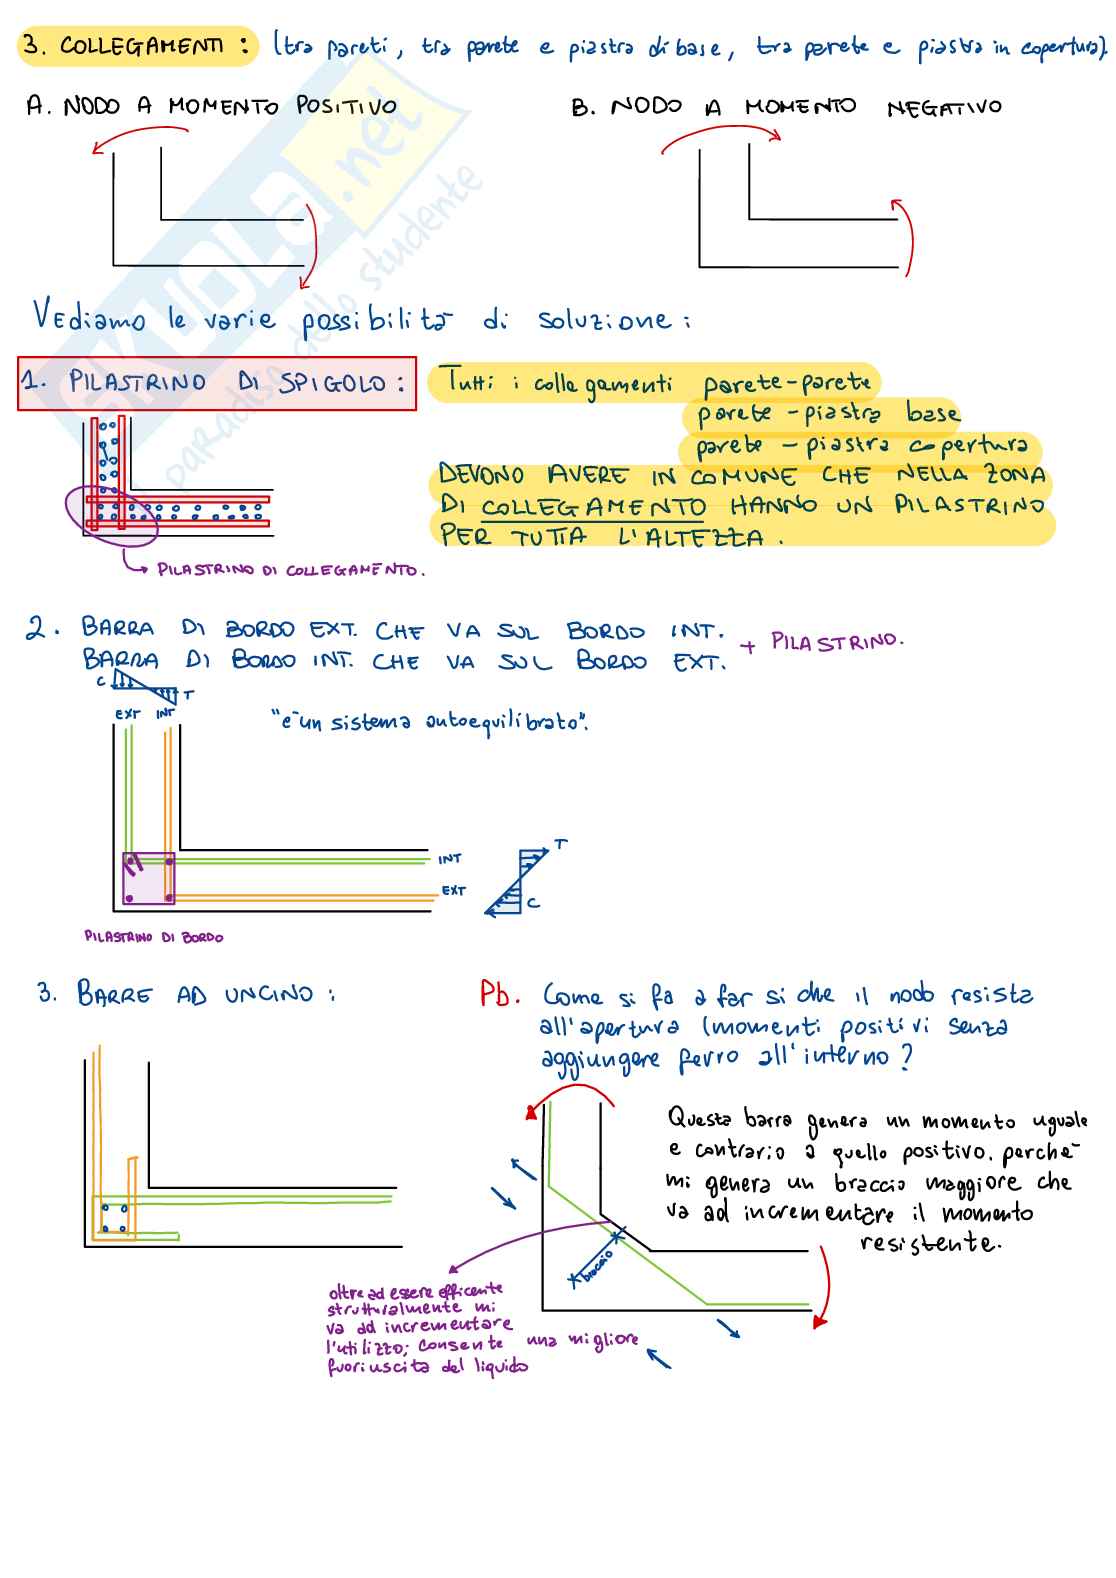 3. COLLEGAMENTI : (tra pareti, tra parete e piastra di base, tra parete e piastra in copertura).
A. NODO A MOMENTO POSITIVO
B. NODO A MOMENTO NEGATIVO
Vediamo le varie possibilità di soluzione :
1. PILASTRINO DI SPIGOLO :
Tutti i collegamenti parete-parete
parete - piastra base
parete - piastra copertura
DEVONO AVERE IN COMUNE CHE NELLA ZONA
DI COLLEGAMENTO HANNO UN PILASTRINO
PER TUTTA L'ALTEZZA.
PILASTRINO DI COLLEGAMENTO.
2. BARRA DI BORDO EXT. CHE VA SUL BORDO INT.
BARRA DI BORDO INT. CHE VA SUL BORDO EXT.
+ PILASTRINO.
C T
EXT INT
"è un sistema autoequilibrato".
INT
EXT
T
C
PILASTRINO DI BORDO
3. BARRE AD UNCINO :
Pb. Come si fa a far si che il nodo resista
all'apertura (momenti positivi senza
aggiungere ferro all'interno ?
Questa barra genera un momento uguale
e contrario a quello positivo. perchè
mi genera un braccio maggiore che
va ad incrementare il momento
resistente.
braccio
oltre ad essere efficente
strutturalmente mi
va ad incrementare
l'utilizzo; consente una migliore
fuoriuscita del liquido
SKUOLA.net
paradiso dello studente